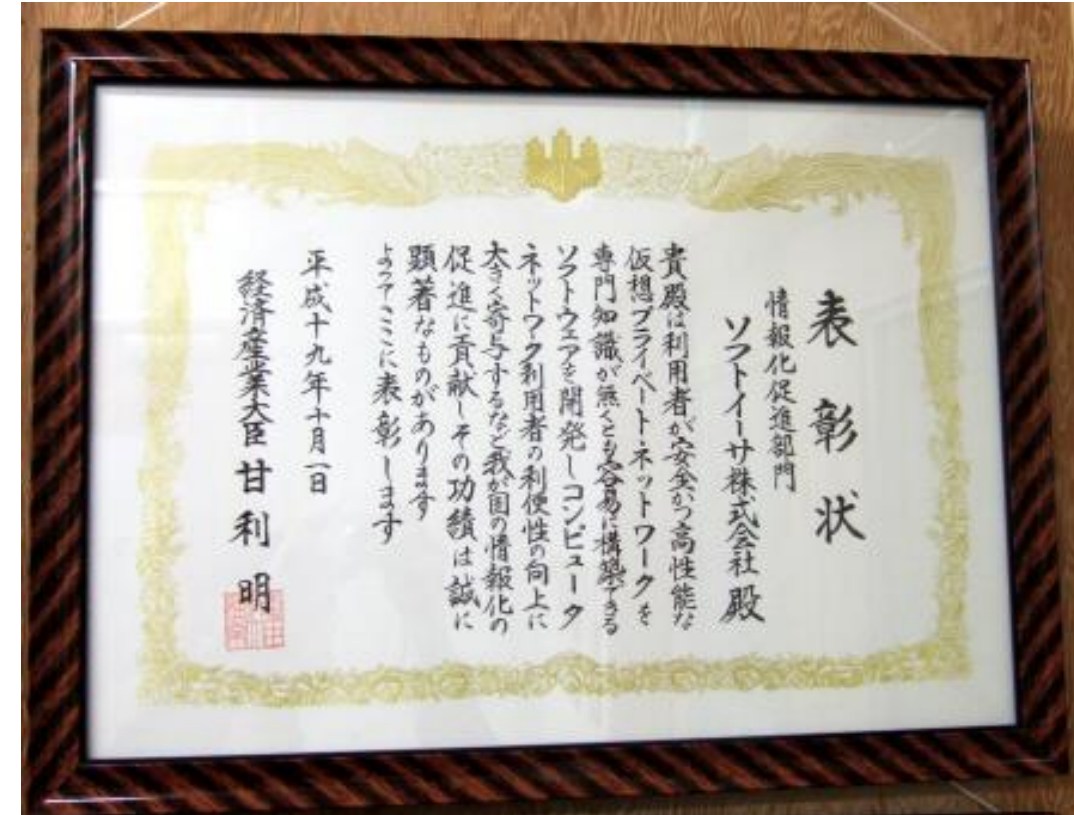 表彰状
情報化促進部門
ソフトイーサ株式会社殿
貴殿は利用者が安全かつ高性能な
仮想プライベートネットワークを
専門知識が無くとも容易に構築できる
ソフトウェアを開発しコンピュータ
ネットワーク利用者の利便性の向上に
大きく寄与するなど我が国の情報化の
促進に貢献しその功績は誠に
顕著なものがあります
よってここに表彰します
平成十九年十月一日
経済産業大臣 甘利 明